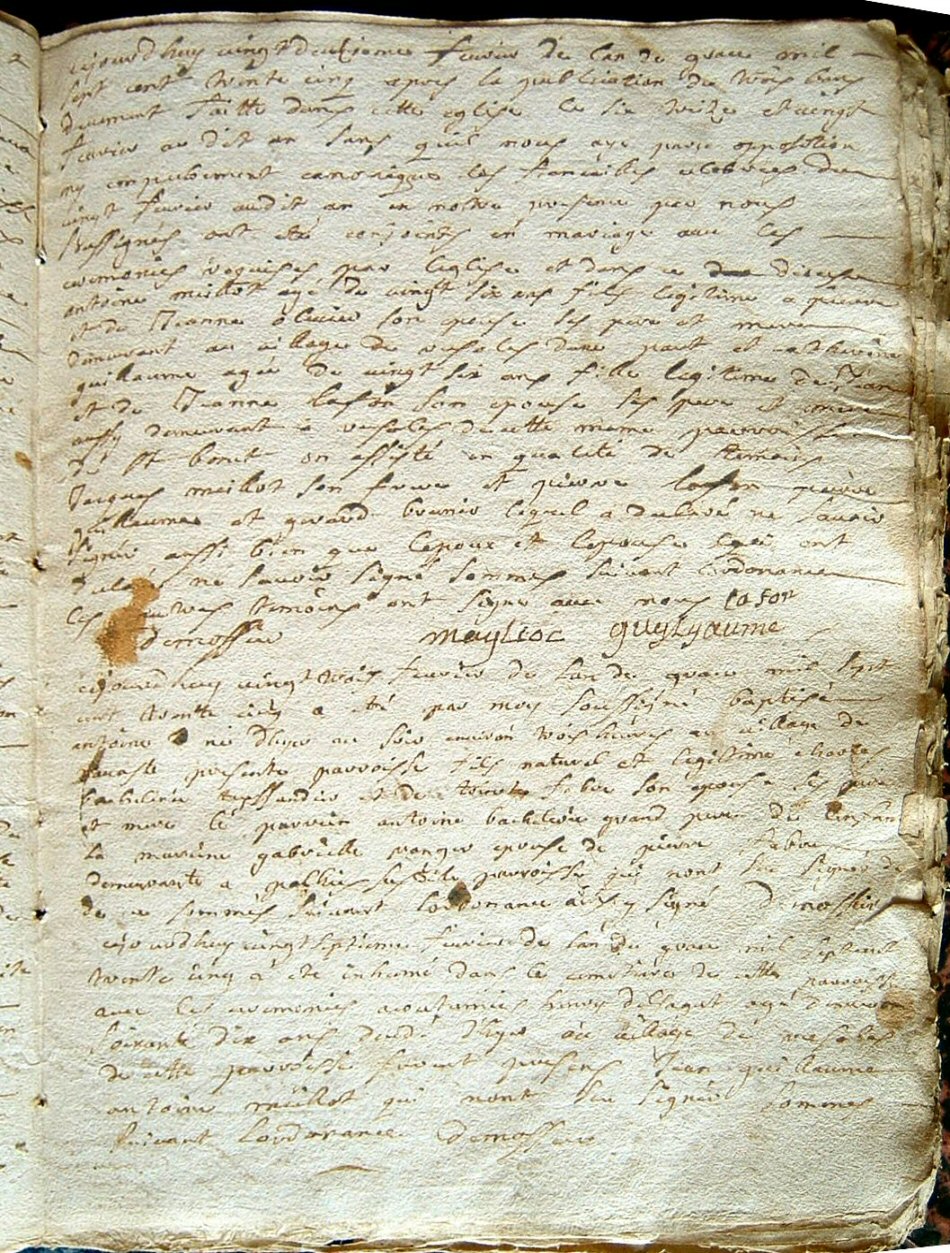 cejourdhuy vingt deuxieme fevrier de lan de grace mil
sept cent trente cinq apres la publication de trois bans
deuement faitte dans cette eglise le six treize et vingt
fevrier audit an sans quil nous aye paru opposition
ny empechement canonique les fiancailles celebrees du
vingt fevrier audit an en nostre presence par nous
soussignes ont été conjoints en mariage avec les
ceremonies requises par leglise et dans ce diocese
antoine meillot agé de vingt six ans fils legitime a pierre
et de Jeanne olivier son epouse ses pere et mere
demeurant au village de vesoles dune part et catherine
guillaume agée de vingt six ans fille legitime de Jean
et de Jeanne lafon son epouse ses pere et mere
aussy demeurant a vesoles de cette meme parroisse
de st bonit on assisté en qualité de temoins
Jacques meillot son frere et pierre lafon pierre
guillaume et gerard brunir lequel a declaré ne savoir
signer aussi bien que lepoux et lepouse qui ont
declaré ne savoir signé sommes suivant lordonance
les autres temoins ont signé avec nous lafon
demossier meylioc guylyaume
cejourdhuy vingt trois fevrier de lan de grace mil sept
cent trente cinq a été par moy soussigné baptisé
antoine né dhyer au soir environ trois heures au village de
presente parroisse fils naturel et legitime charles
bachelerie tissandier et de toinete fabre son epouse ses pere
et mere le parrein antoine bachelerie grand pere de lenfan
la marrine gabrielle epouse de pierre fabre
demeurante a parroisse qui nont seu signé de
de ce sommes suivant lordonance aussy signé Demossier
cejourdhuy vingt septieme fevrier de lan de grace mil sept cent
trente cinq a été inhumé dans le cimetiere de cette parroisse
avec les ceremonies acoutumées agé denviron
soixante dix ans decedé dhyer au village de vesoles
de cette parroisse furent presens Jean guillaume
antoine meillot qui nont seu signer sommes
suivant lordonance demossier